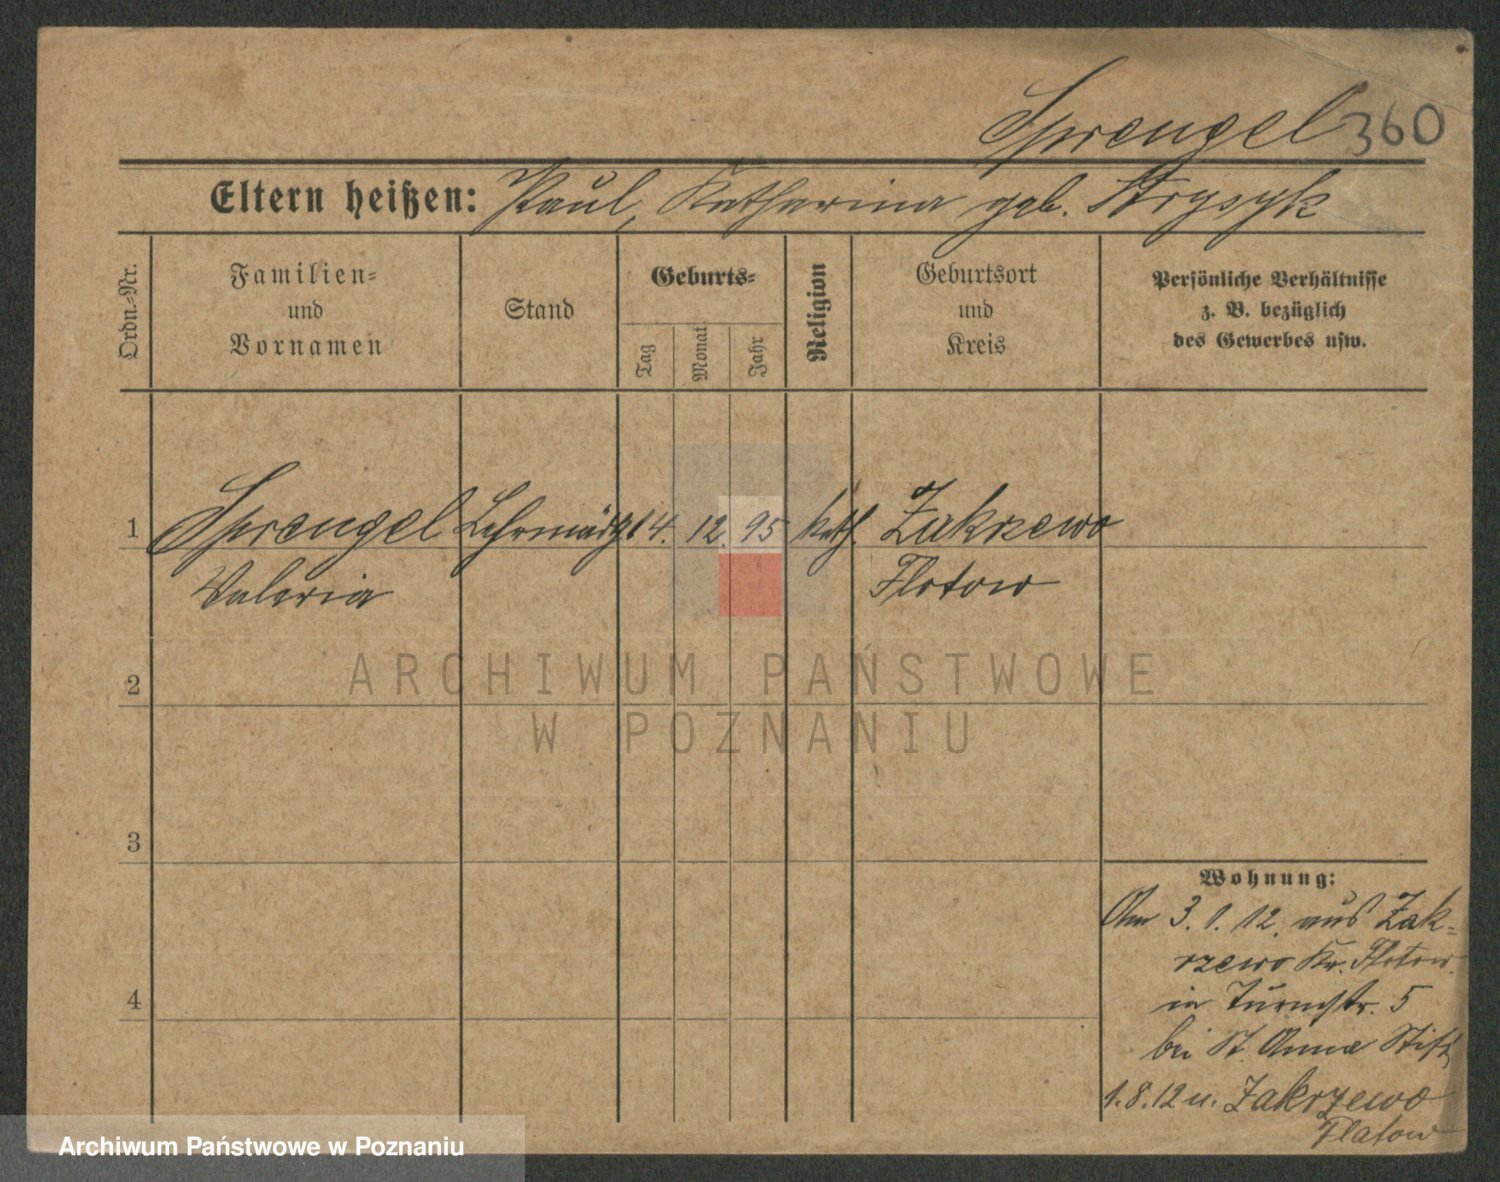 Sprengel 360
Eltern heißen: Paul, Katharina geb.
Ordn.-Nr.
Familien-
und
Vornamen
Stand
Geburts-
Tag
Monat
Jahr
Religion
Geburtsort
und
Kreis
Persönliche Verhältnisse
z. B. bezüglich
des Gewerbes usw.
1 Sprengel Lehrmädch 14. 12. 95 kath. Zakrzewo
Valeria Flatow
2
3
4
Wohnung:
Am 3. 1. 12. aus Zak-
rzewo Kr. Flatow.
in Turmstr. 5
bei St. Anna Stift
1.8.12 n. Zakrzewo
Flatow
ARCHIWUM PAŃSTWOWE
W POZNANIU
Archiwum Państwowe w Poznaniu